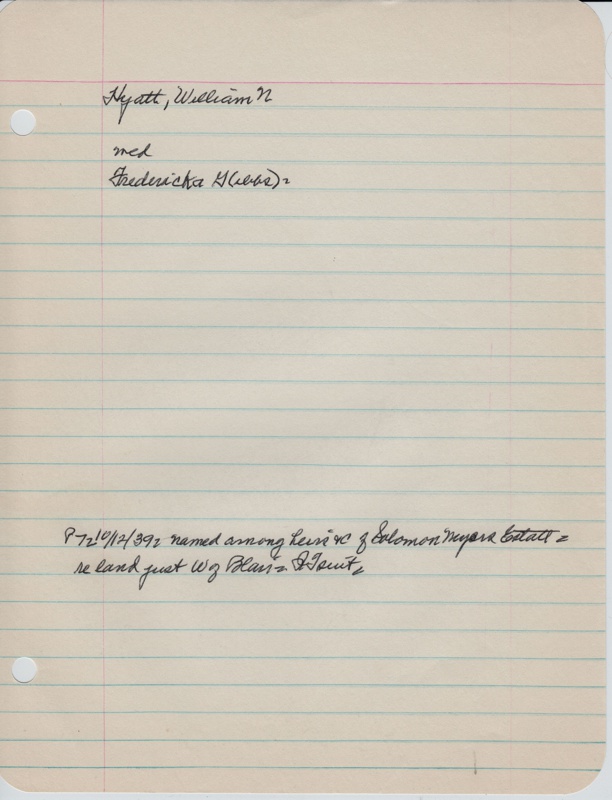 Hyatt, William N
med
Fredericka G(ibbs)=
P 7= 10/12/39= named among heirs &c of Solomon Myers Estate =
re land just W of Blair = Suit =